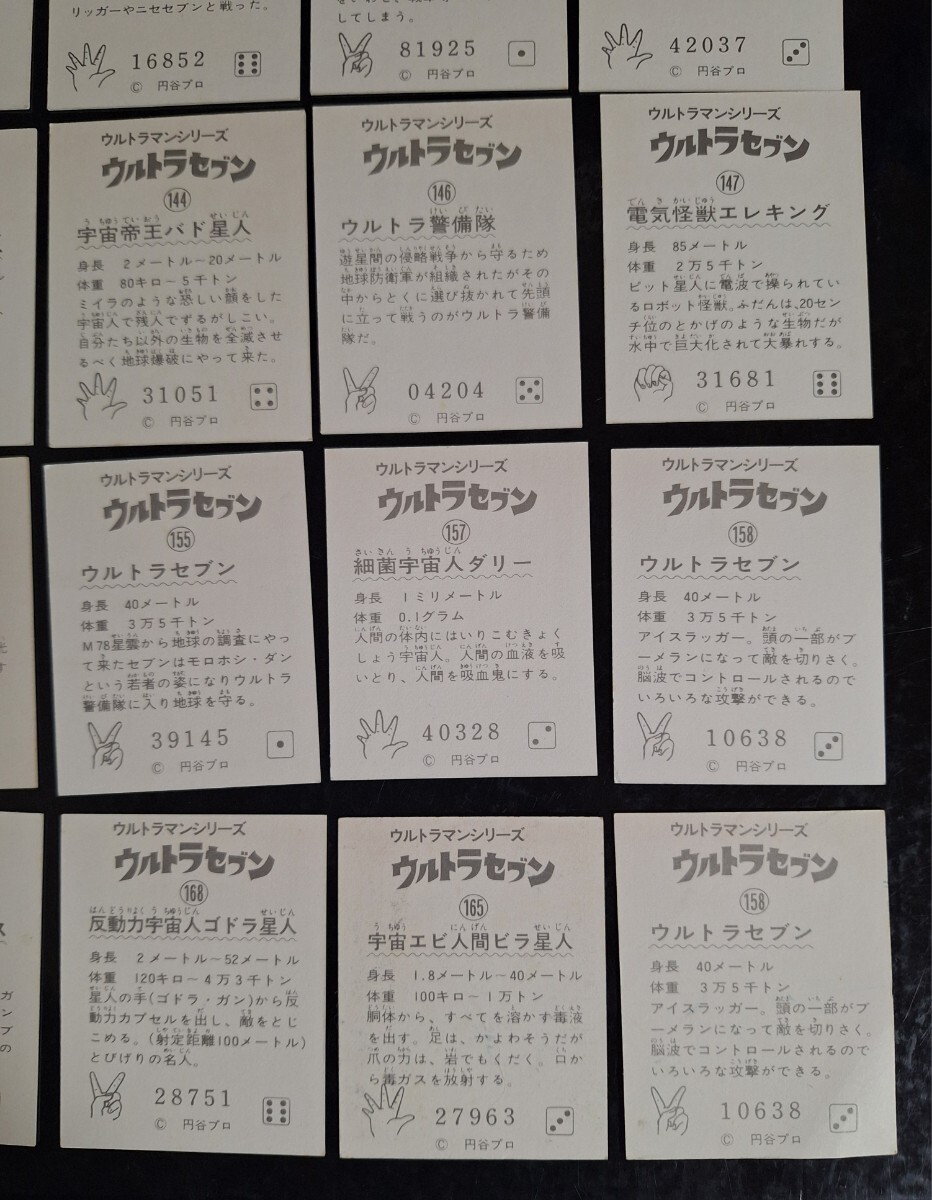 リッガーやニセセブンと戦った。
16852
© 円谷プロ
してしまう。
81925
© 円谷プロ
42037
© 円谷プロ
ウルトラマンシリーズ
ウルトラセブン
144
宇宙帝王バド星人
身長 2メートル〜20メートル
体重 80キロ〜5千トン
ミイラのような恐しい顔をした
宇宙人で残人でずるがしこい。
自分たち以外の生物を全滅させ
るべく地球爆破にやって来た。
31051
© 円谷プロ
ウルトラマンシリーズ
ウルトラセブン
146
ウルトラ警備隊
遊星間の侵略戦争から守るため
地球防衛軍が組織されたがその
中からとくに選び抜かれて先頭
に立って戦うのがウルトラ警備
隊だ。
04204
© 円谷プロ
ウルトラマンシリーズ
ウルトラセブン
147
電気怪獣エレキング
身長 85メートル
体重 2万5千トン
ピット星人に電波で操られてい
るロボット怪獣。ふだんは、20セン
チ位のとかげのような生物だが
水中で巨大化されて大暴れする。
31681
© 円谷プロ
ウルトラマンシリーズ
ウルトラセブン
155
ウルトラセブン
身長 40メートル
体重 3万5千トン
M78星雲から地球の調査にやっ
て来たセブンはモロホシ・ダン
という若者の姿になりウルトラ
警備隊に入り地球を守る。
39145
© 円谷プロ
ウルトラマンシリーズ
ウルトラセブン
157
細菌宇宙人ダリー
身長 1ミリメートル
体重 0.1グラム
人間の体内にはいりこむきょく
しょう宇宙人。人間の血液を吸
いとり、人間を吸血鬼にする。
40328
© 円谷プロ
ウルトラマンシリーズ
ウルトラセブン
158
ウルトラセブン
身長 40メートル
体重 3万5千トン
アイスラッガー。頭の一部がブ
ーメランになって敵を切りさく。
脳波でコントロールされるので
いろいろな攻撃ができる。
10638
© 円谷プロ
ウルトラマンシリーズ
ウルトラセブン
168
反動力宇宙人ゴドラ星人
身長 2メートル〜52メートル
体重 120キロ〜4万3千トン
星人の手(ゴドラ・ガン)から反
動力カプセルを出し、敵をとじ
こめる。(射定距離100メートル)
とびげりの名人。
28751
© 円谷プロ
ウルトラマンシリーズ
ウルトラセブン
165
宇宙エビ人間ビラ星人
身長 1.8メートル〜40メートル
体重 100キロ〜1万トン
胴体から、すべてを溶かす毒液
を出す。足は、かよわそうだが
爪の力は、岩でもくだく。口か
ら毒ガスを放射する。
27963
© 円谷プロ
ウルトラマンシリーズ
ウルトラセブン
158
ウルトラセブン
身長 40メートル
体重 3万5千トン
アイスラッガー。頭の一部がブ
ーメランになって敵を切りさく。
脳波でコントロールされるので
いろいろな攻撃ができる。
10638
© 円谷プロ